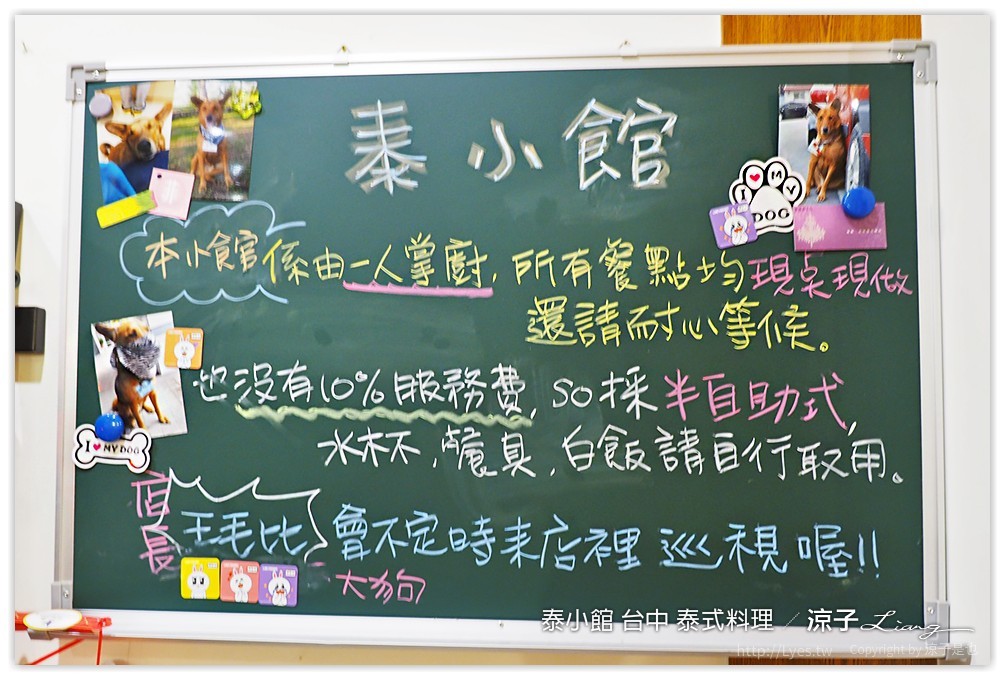 泰小館
I ♥ MY DOG
本小館係由一人掌廚,所有餐點均現桌現做
還請耐心等候。
也沒有10%服務費, SO採半自助式,
I ♥ MY DOG
水杯,餐具,白飯請自行取用。
店長 王毛比 會不定時來店裡巡視喔!!
大狗
泰小館 台中 泰式料理 / 涼子 Liang
http://Lyes.tw Copyright by 涼子是也